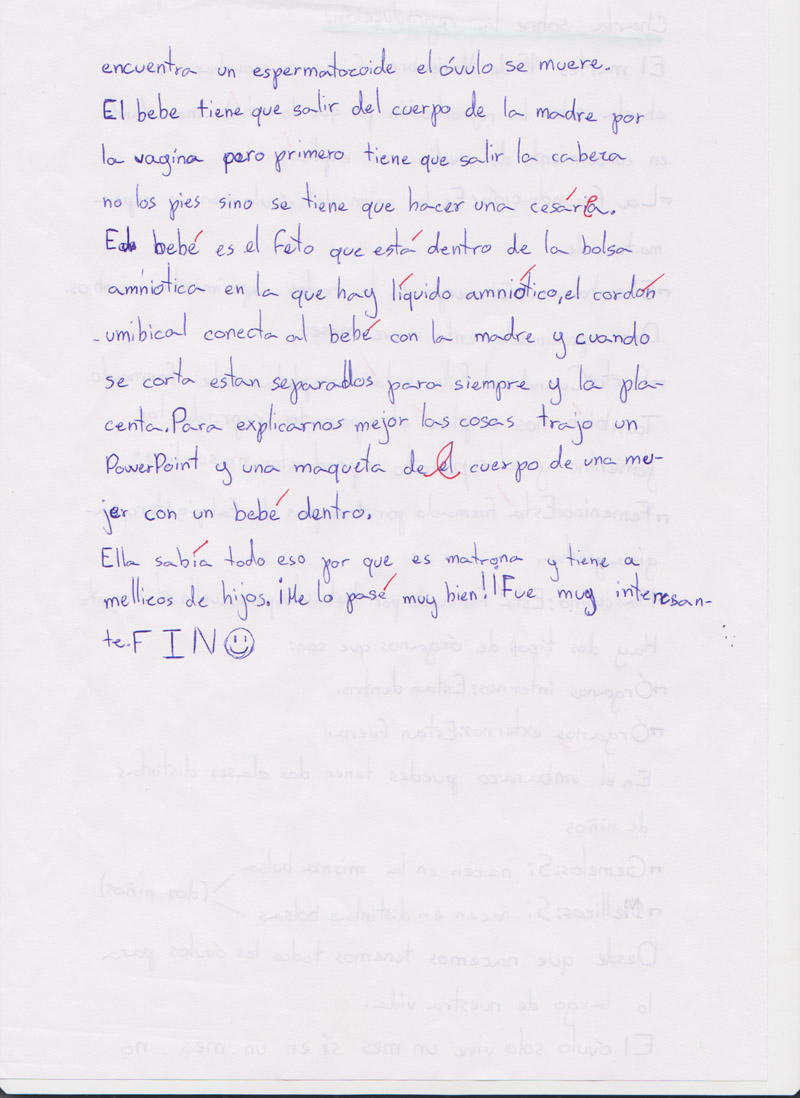 encuentra un espermatozoide el óvulo se muere.
El bebe tiene que salir del cuerpo de la madre por
la vagina pero primero tiene que salir la cabeza
no los pies sino se tiene que hacer una cesárea.
El bebé es el feto que está dentro de la bolsa
amniótica en la que hay líquido amniótico, el cordón
umibical conecta al bebé con la madre y cuando
se corta estan separados para siempre y la pla-
centa. Para explicarnos mejor las cosas trajo un
PowerPoint y una maqueta de el cuerpo de una mu-
jer con un bebé dentro.
Ella sabía todo eso por que es matrona y tiene a
mellicos de hijos. ¡Me lo pasé muy bien! ¡Fue muy interesan-
te. FIN